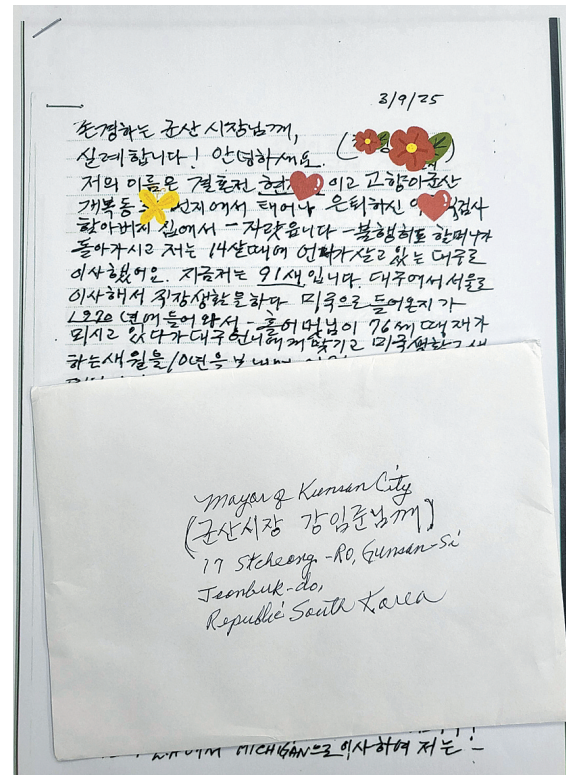 3/9/25
존경하는 군산 시장님께,
실례합니다! 안녕하세요.
저의 이름은 결혼전 현 이고 고향이 군산
개복동 번지에서 태어나 은퇴하신 검사
할아버지 집에서 - 자랐읍니다 - 불행히도 할머니가
돌아가시고 저는 14살때에 언니가 살고 있는 대구로
이사했어요. 지금 저는 91세입니다. 대구에서 서울로
이사해서 직장생활을 하다 미국으로 들어온지가
1970 년에 들어 와서 - 홀어머님이 76세 때 제가
모시고 있다가 대구언니에게 맞기고 미국
하는 세월을 10년을
Mayor of Kunsan City
(군산시장 강임준님께)
17 Stcheong-Ro, Gunsan-Si
Jeonbuk-do,
Republic South Korea
MICHIGAN으로 이사하여 저는